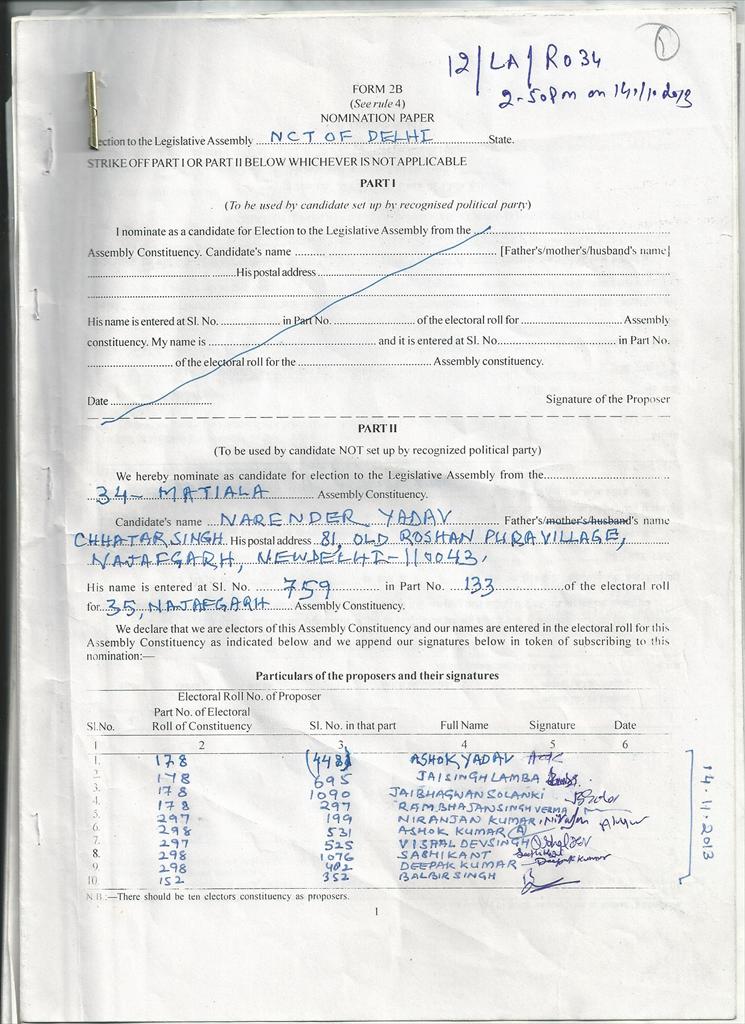 1
12/LA/RO34
2-50 pm on 14/11/2013
FORM 2B
(See rule 4)
NOMINATION PAPER
ection to the Legislative Assembly ....NCT OF DELHI....State.
STRIKE OFF PART I OR PART II BELOW WHICHEVER IS NOT APPLICABLE
PART I
(To be used by candidate set up by recognised political party)
I nominate as a candidate for Election to the Legislative Assembly from the ..........
Assembly Constituency. Candidate's name .......... [Father's/mother's/husband's name]
..........His postal address..........
His name is entered at Sl. No. .......... in Part No. .......... of the electoral roll for .......... Assembly
constituency. My name is .......... and it is entered at Sl. No.......... in Part No.
.......... of the electoral roll for the .......... Assembly constituency.
Date .......... Signature of the Proposer
PART II
(To be used by candidate NOT set up by recognized political party)
We hereby nominate as candidate for election to the Legislative Assembly from the..........
34- MATIALA .......... Assembly Constituency.
Candidate's name ..NARENDER YADAV.......... Father's/mother's/husband's name
CHHATAR SINGH. His postal address 81, OLD ROSHAN PURA VILLAGE,
NAJAFGARH, NEW DELHI-110043.
His name is entered at Sl. No. ....759.......... in Part No. ...133..........of the electoral roll
for 35, NAJAFGARH .......... Assembly Constituency.
We declare that we are electors of this Assembly Constituency and our names are entered in the electoral roll for this
Assembly Constituency as indicated below and we append our signatures below in token of subscribing to this
nomination:—
Particulars of the proposers and their signatures
Electoral Roll No. of Proposer
Sl.No. Part No. of Electoral Roll of Constituency Sl. No. in that part Full Name Signature Date
1 2 3 4 5 6
1. 178 (448) ASHOK YADAV
2. 178 695 JAI SINGH LAMBA
3. 178 1090 JAI BHAGWAN SOLANKI
4. 178 297 RAM BHAJAN SINGH VERMA
5. 297 199 NIRANJAN KUMAR, Niranjan
6. 298 531 ASHOK KUMAR
7. 297 525 VISHAL DEV SINGH
8. 298 1076 SASHIKANT Sashikant
9. 298 402 DEEPAK KUMAR Deepak Kumar
10. 152 352 BALBIR SINGH
14.11.2013
N.B.:—There should be ten electors constituency as proposers.
1